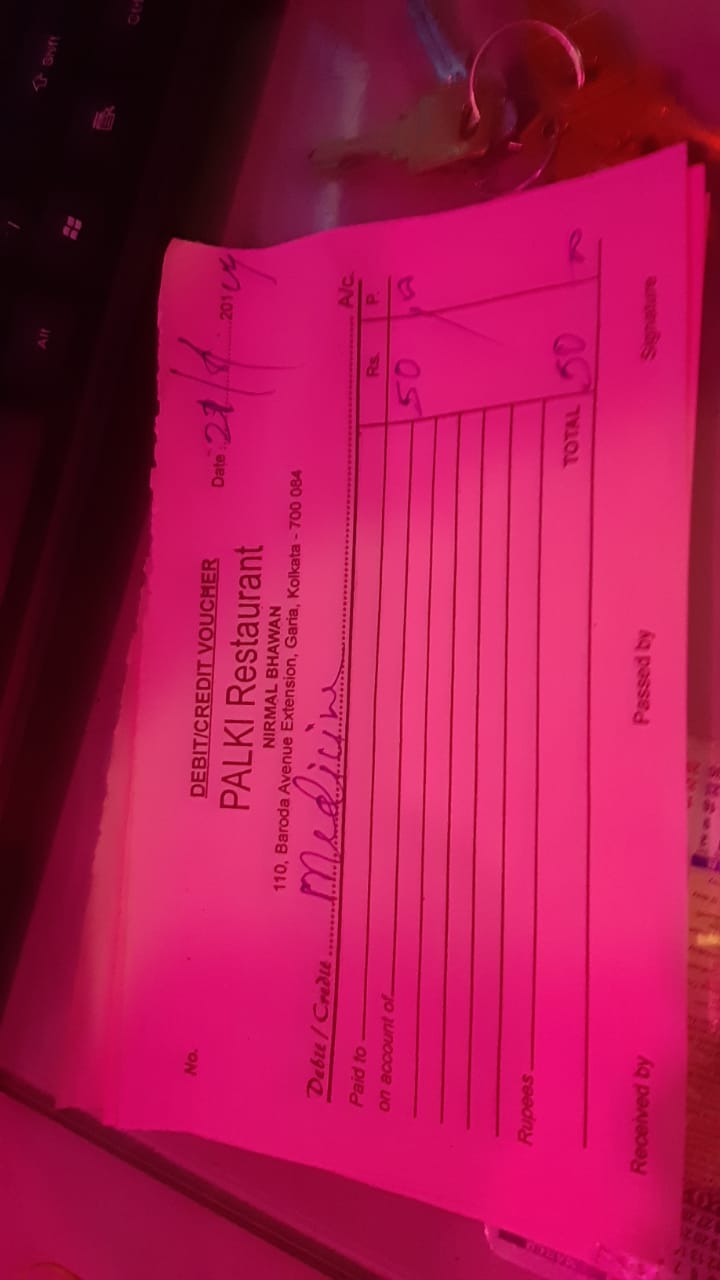 No.
DEBIT/CREDIT VOUCHER
PALKI Restaurant
Date :
201
NIRMAL BHAWAN
110, Baroda Avenue Extension, Garia, Kolkata - 700 084
Debit / Credit Medicine A/c.
Paid to Rs. P.
on account of 50
Rupees
TOTAL 50
Received by Passed by Signature
Shift
Alt